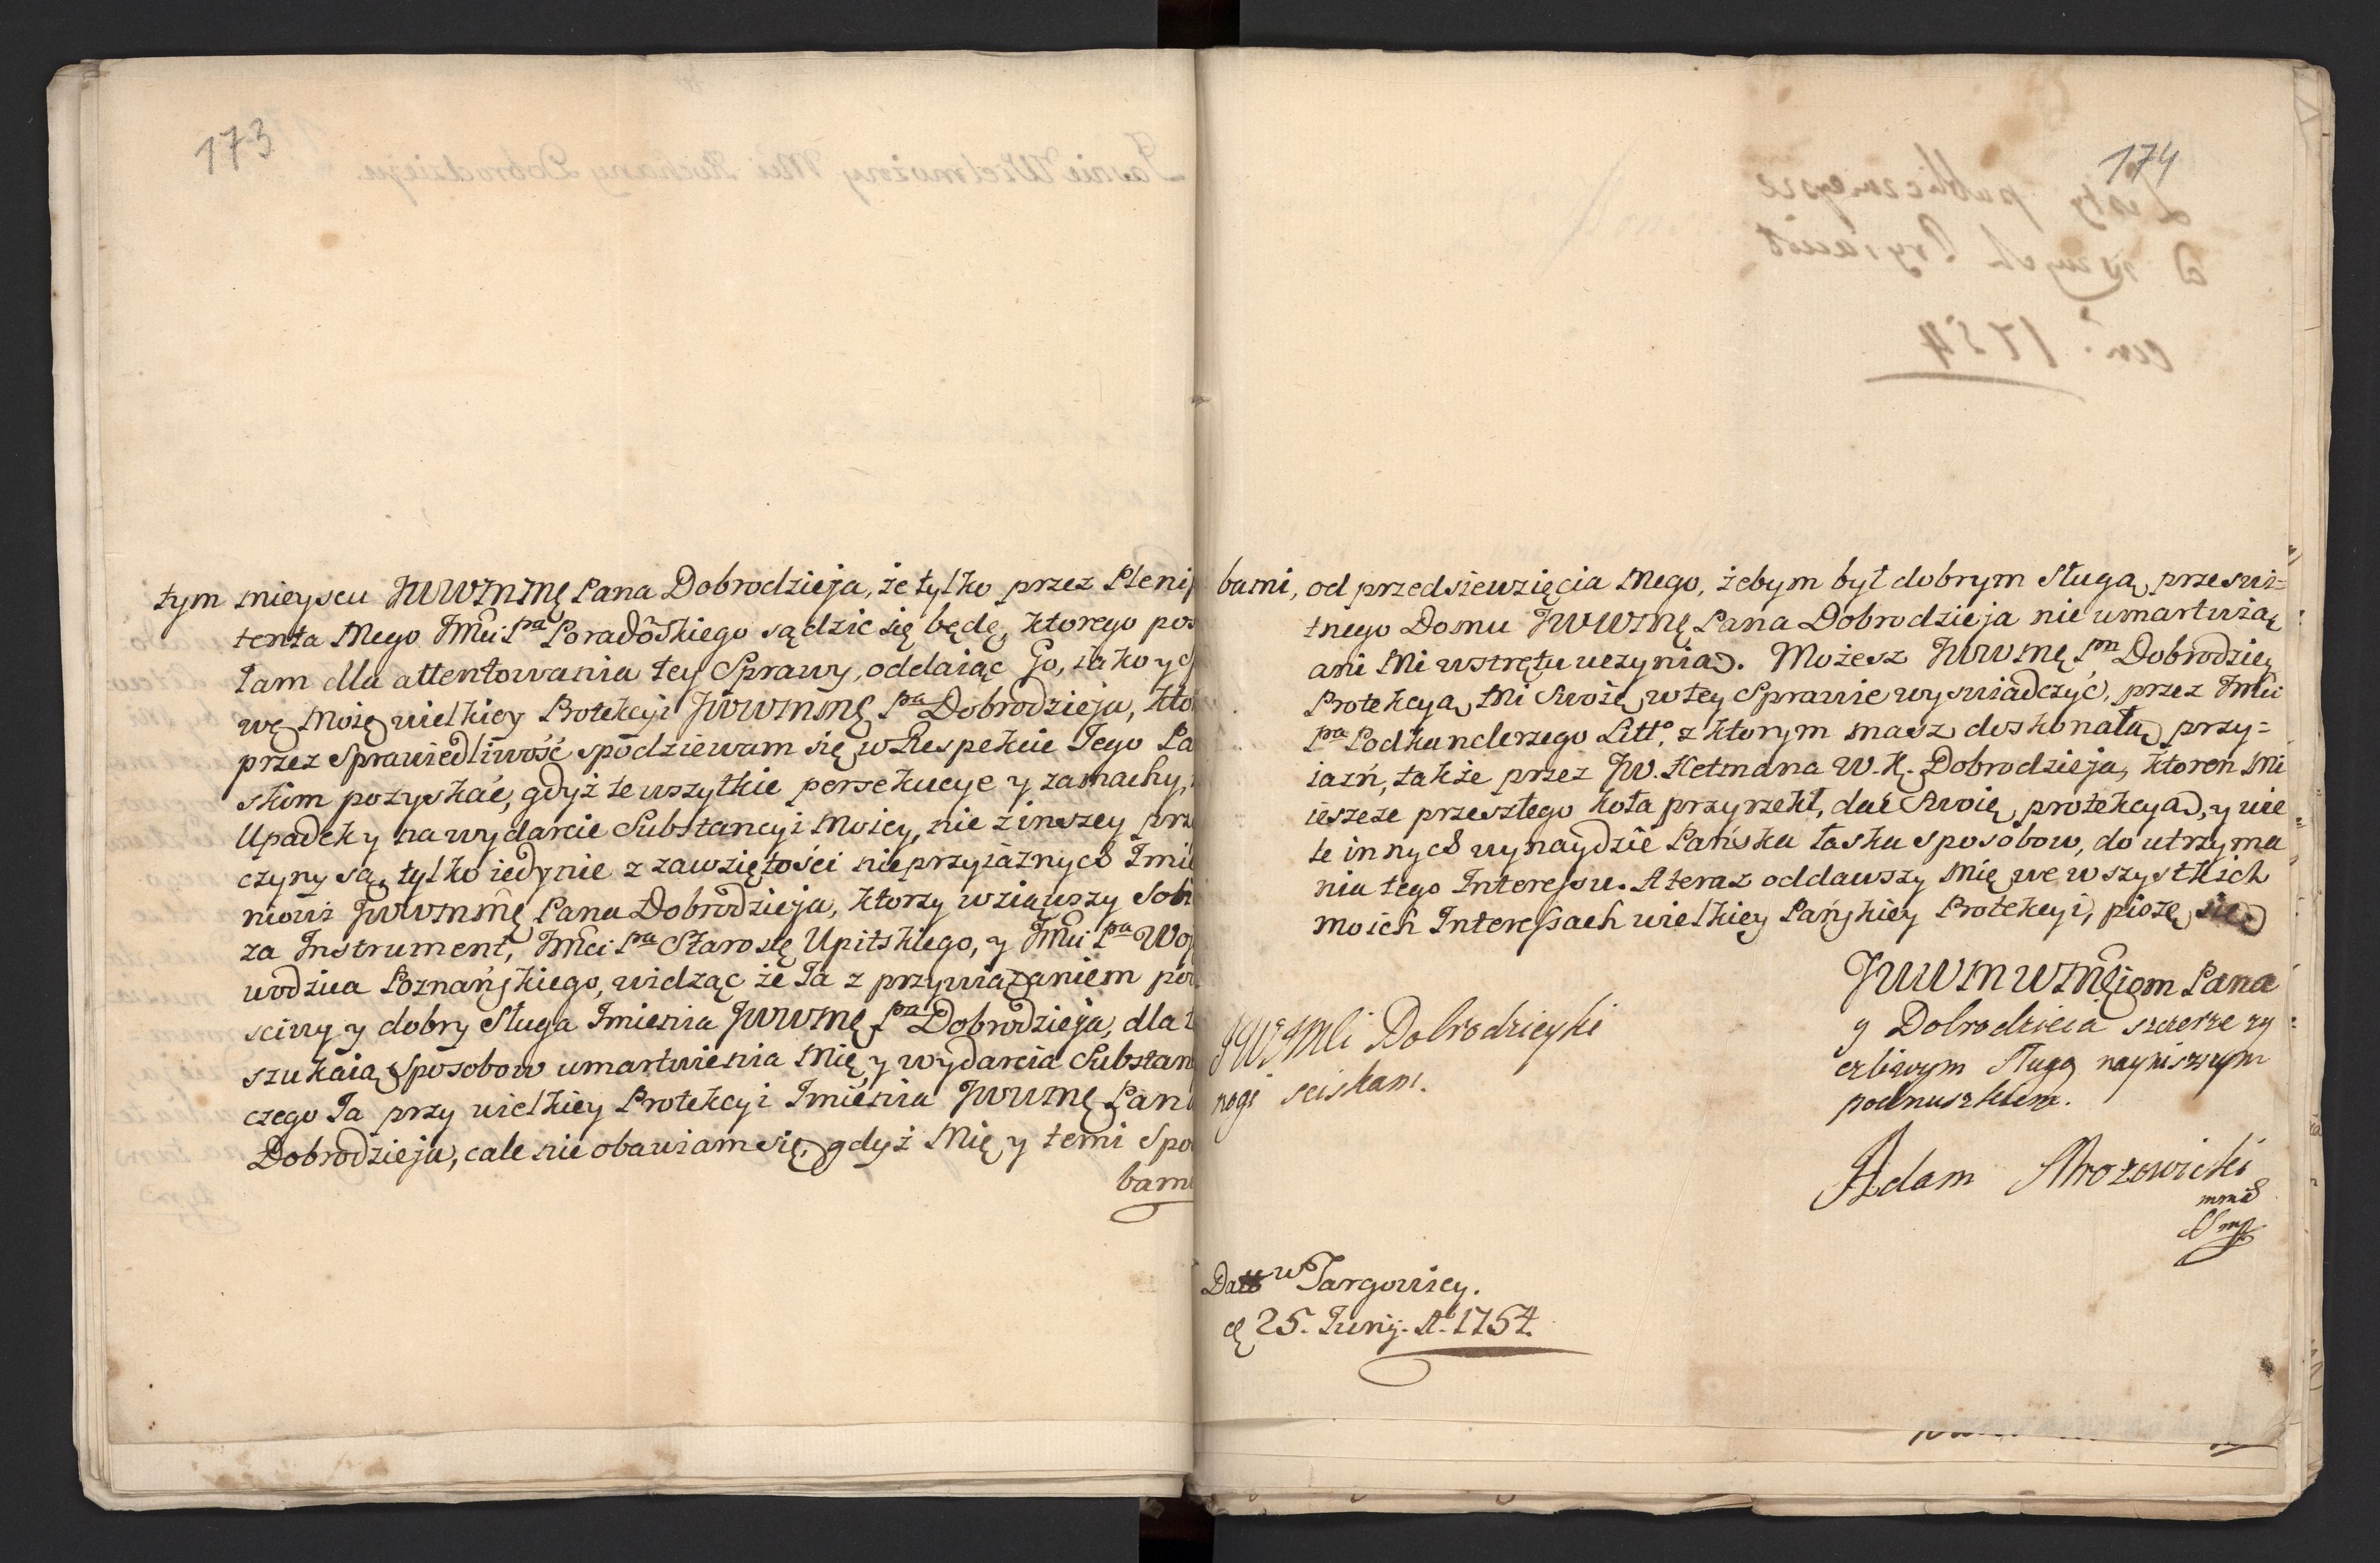 173
tym mieyscu JWWMMę Pana Dobrodzieja, że tylko przez Pleni
tenta Mego Jmci Pna Poradoskiego sądzic się będę, ktorego pos
tam dla attentowania tey Sprawy, oddaiąc Go, iako y
wę Moię wielkiey Protekcyi JWWMMę Pna Dobrodzieja, kto
przez Sprawiedliwość spodziewam się w Respekcie Jego Pa
skim pozyskać, gdyż te wszytkie persekucye y zamachy,
Upadek y na wydarcie Substancyi Moiey, nie z inszey prz
czyny są, tylko iedynie z zawziętości nieprzyiaznych Imie
niowi JWWMMę Pana Dobrodzieja, ktorzy wziąwszy Sobi
za Instrument, Jmci Pna Starostę Upitskiego, y Jmci Pna Woj
wodzica Poznańskiego, widząc że Ja z przywiązaniem po
sciwy y dobry Sługa Imienia JWWMę Pna Dobrodzieja, dla t
szukaią Sposobow umartwienia Mię y wydarcia Substan
czego Ja przy wielkiey Protekcyi Imienia JWWMę Pan
Dobrodzieja, cale nie obawiam się, gdyż Mię y temi Spo
bami
174
bami, od przedsiewzięcia Mego, żebym był dobrym Sługą, przeswi=
tnego Domu JWWMę Pana Dobrodzieja nie umartwią
ani Mi wstrętu uczynią. Możesz JWWMę Pn Dobrodziey
Protekcyą Mi Swoię w tey Sprawie wyswiadczyć, przez Jmci
Pna Podkanclerzego Litt: z ktorym masz doskonałą przy=
iazń, także przez JW. Hetmana W. K. Dobrodzieja, ktoren Mi
ieszcze przeszłego Roku przyrzekł, dać Swoię protekcyą, y wie
le innych wynaydzie Pańska łaska sposobow, do utrzyma
nia tego Interessu. A teraz oddawszy Mię we wszystkich
moich Interessach wielkiey Pańskiey Protekcyi, piszę się
JWWMWMęiom Pana
y Dobrodzieia szczerze zy
czliwym Sługą nayniszszym
podnuszkiem.
Dobrodzieyki
nogi sciskam.
Adam Mrozowicki
mp
Dat w Targowicy.
25. Junij. Ao 1754.